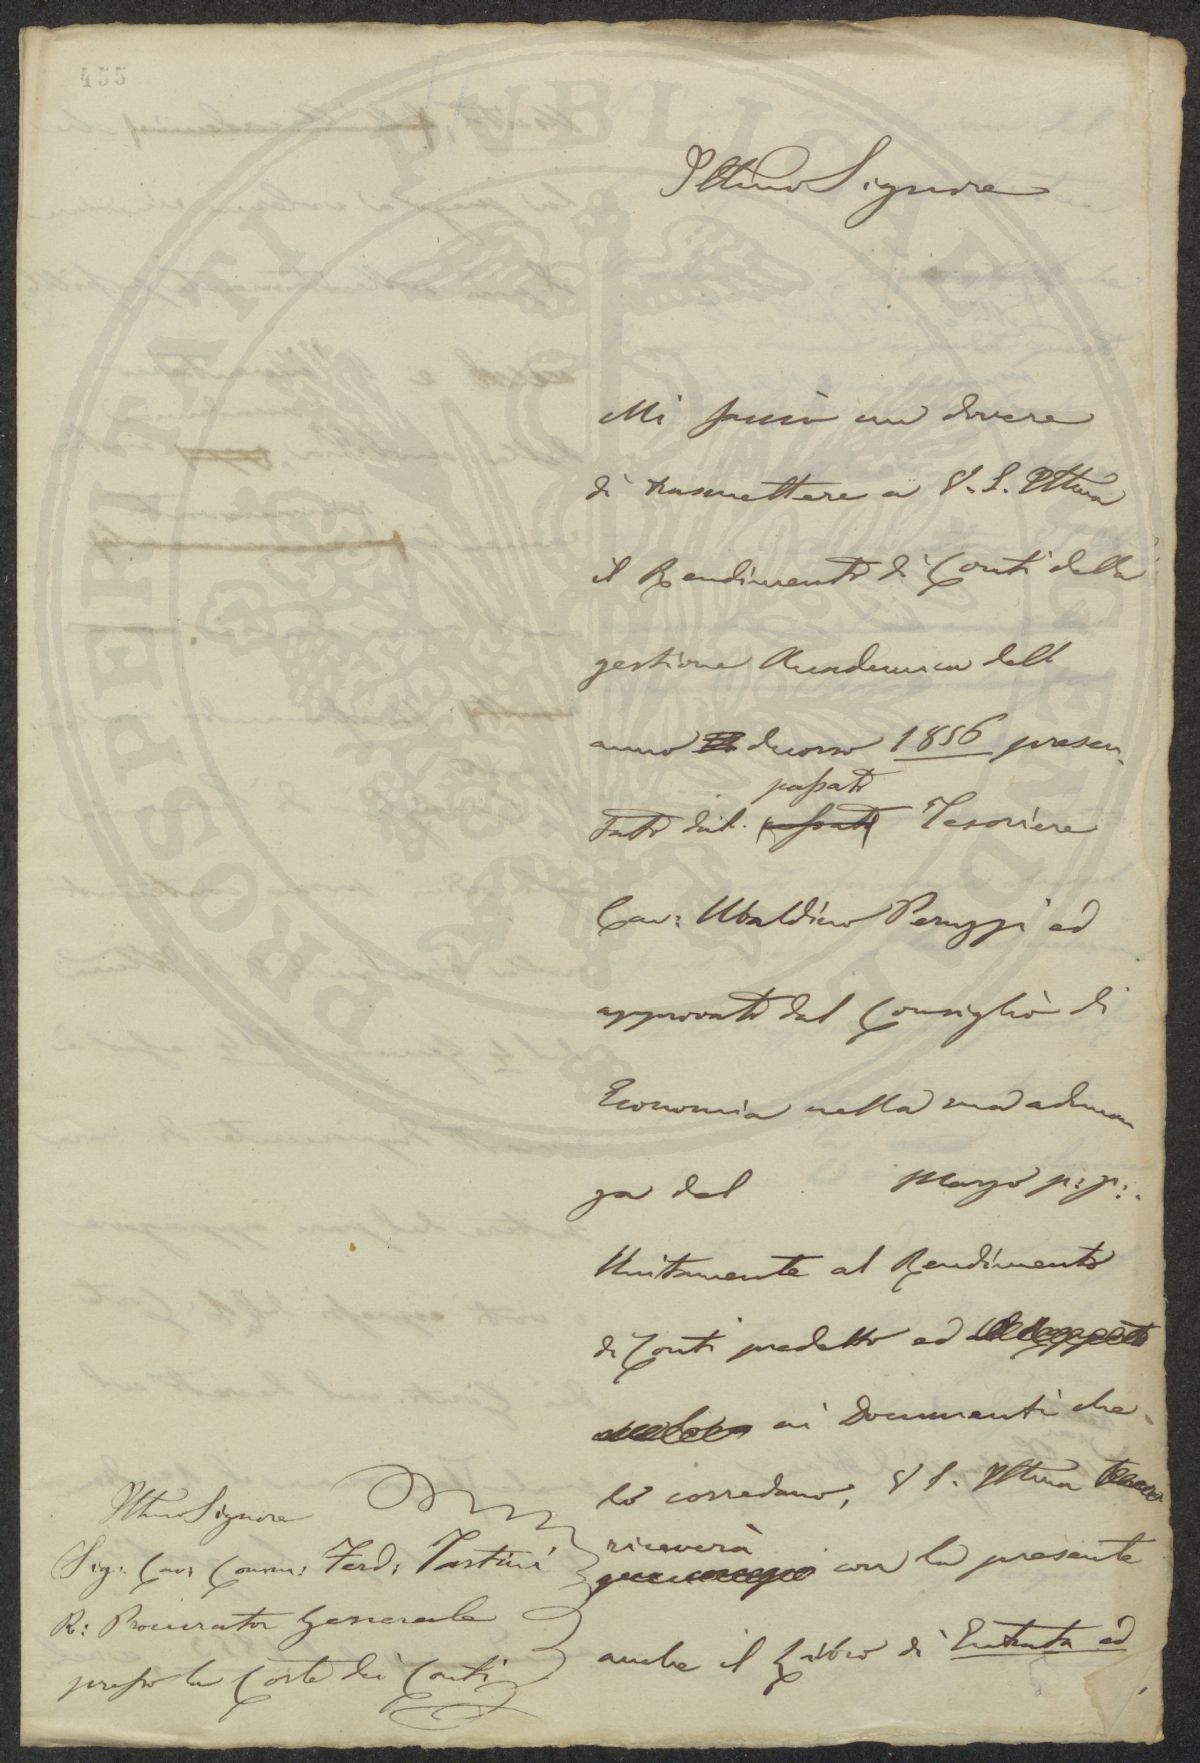 455
Illmo Signore
Mi faccio un dovere
di trasmettere a V. S. Illma
il Rendimento di Conti della
gestione Accademica dell
anno decorso 1856 presen-
passato
tato dal passato Tesoriere
Cav: Ubaldino Peruzzi ed
approvato dal Consiglio di
Economia nella sua adunan
za del Marzo p: p:.
Unitamente al Rendimento
di Conti predetto ed
ai Documenti che
lo corredano, V S. Illma
riceverà
con la presente
anche il Libro di Entrata ed
Illmo Signore
Sig: Cav: Comm: Ferd: Tartini
R: Procurator Generale
presso la Corte dei Conti
PROSPERITATI PVBLICAE AVGENDAE